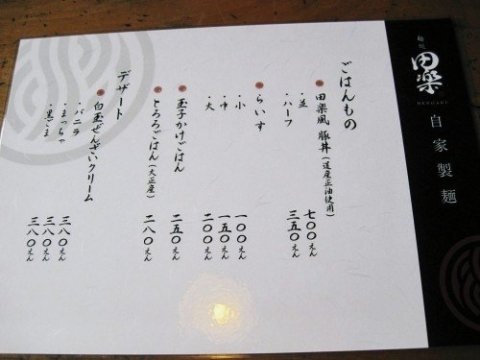 麺処
田楽
DENGAKU
自家製麺
ごはんもの
田楽風 豚丼(道産正油使用)
・並 七〇〇えん
・ハーフ 三五〇えん
らいす
・小 一〇〇えん
・中 一五〇えん
・大 二〇〇えん
玉子かけごはん 二五〇えん
とろろごはん(大正産) 二八〇えん
デザート
白玉ぜんざいクリーム
・バニラ 三八〇えん
・まっちゃ 三八〇えん
・黒ごま 三八〇えん